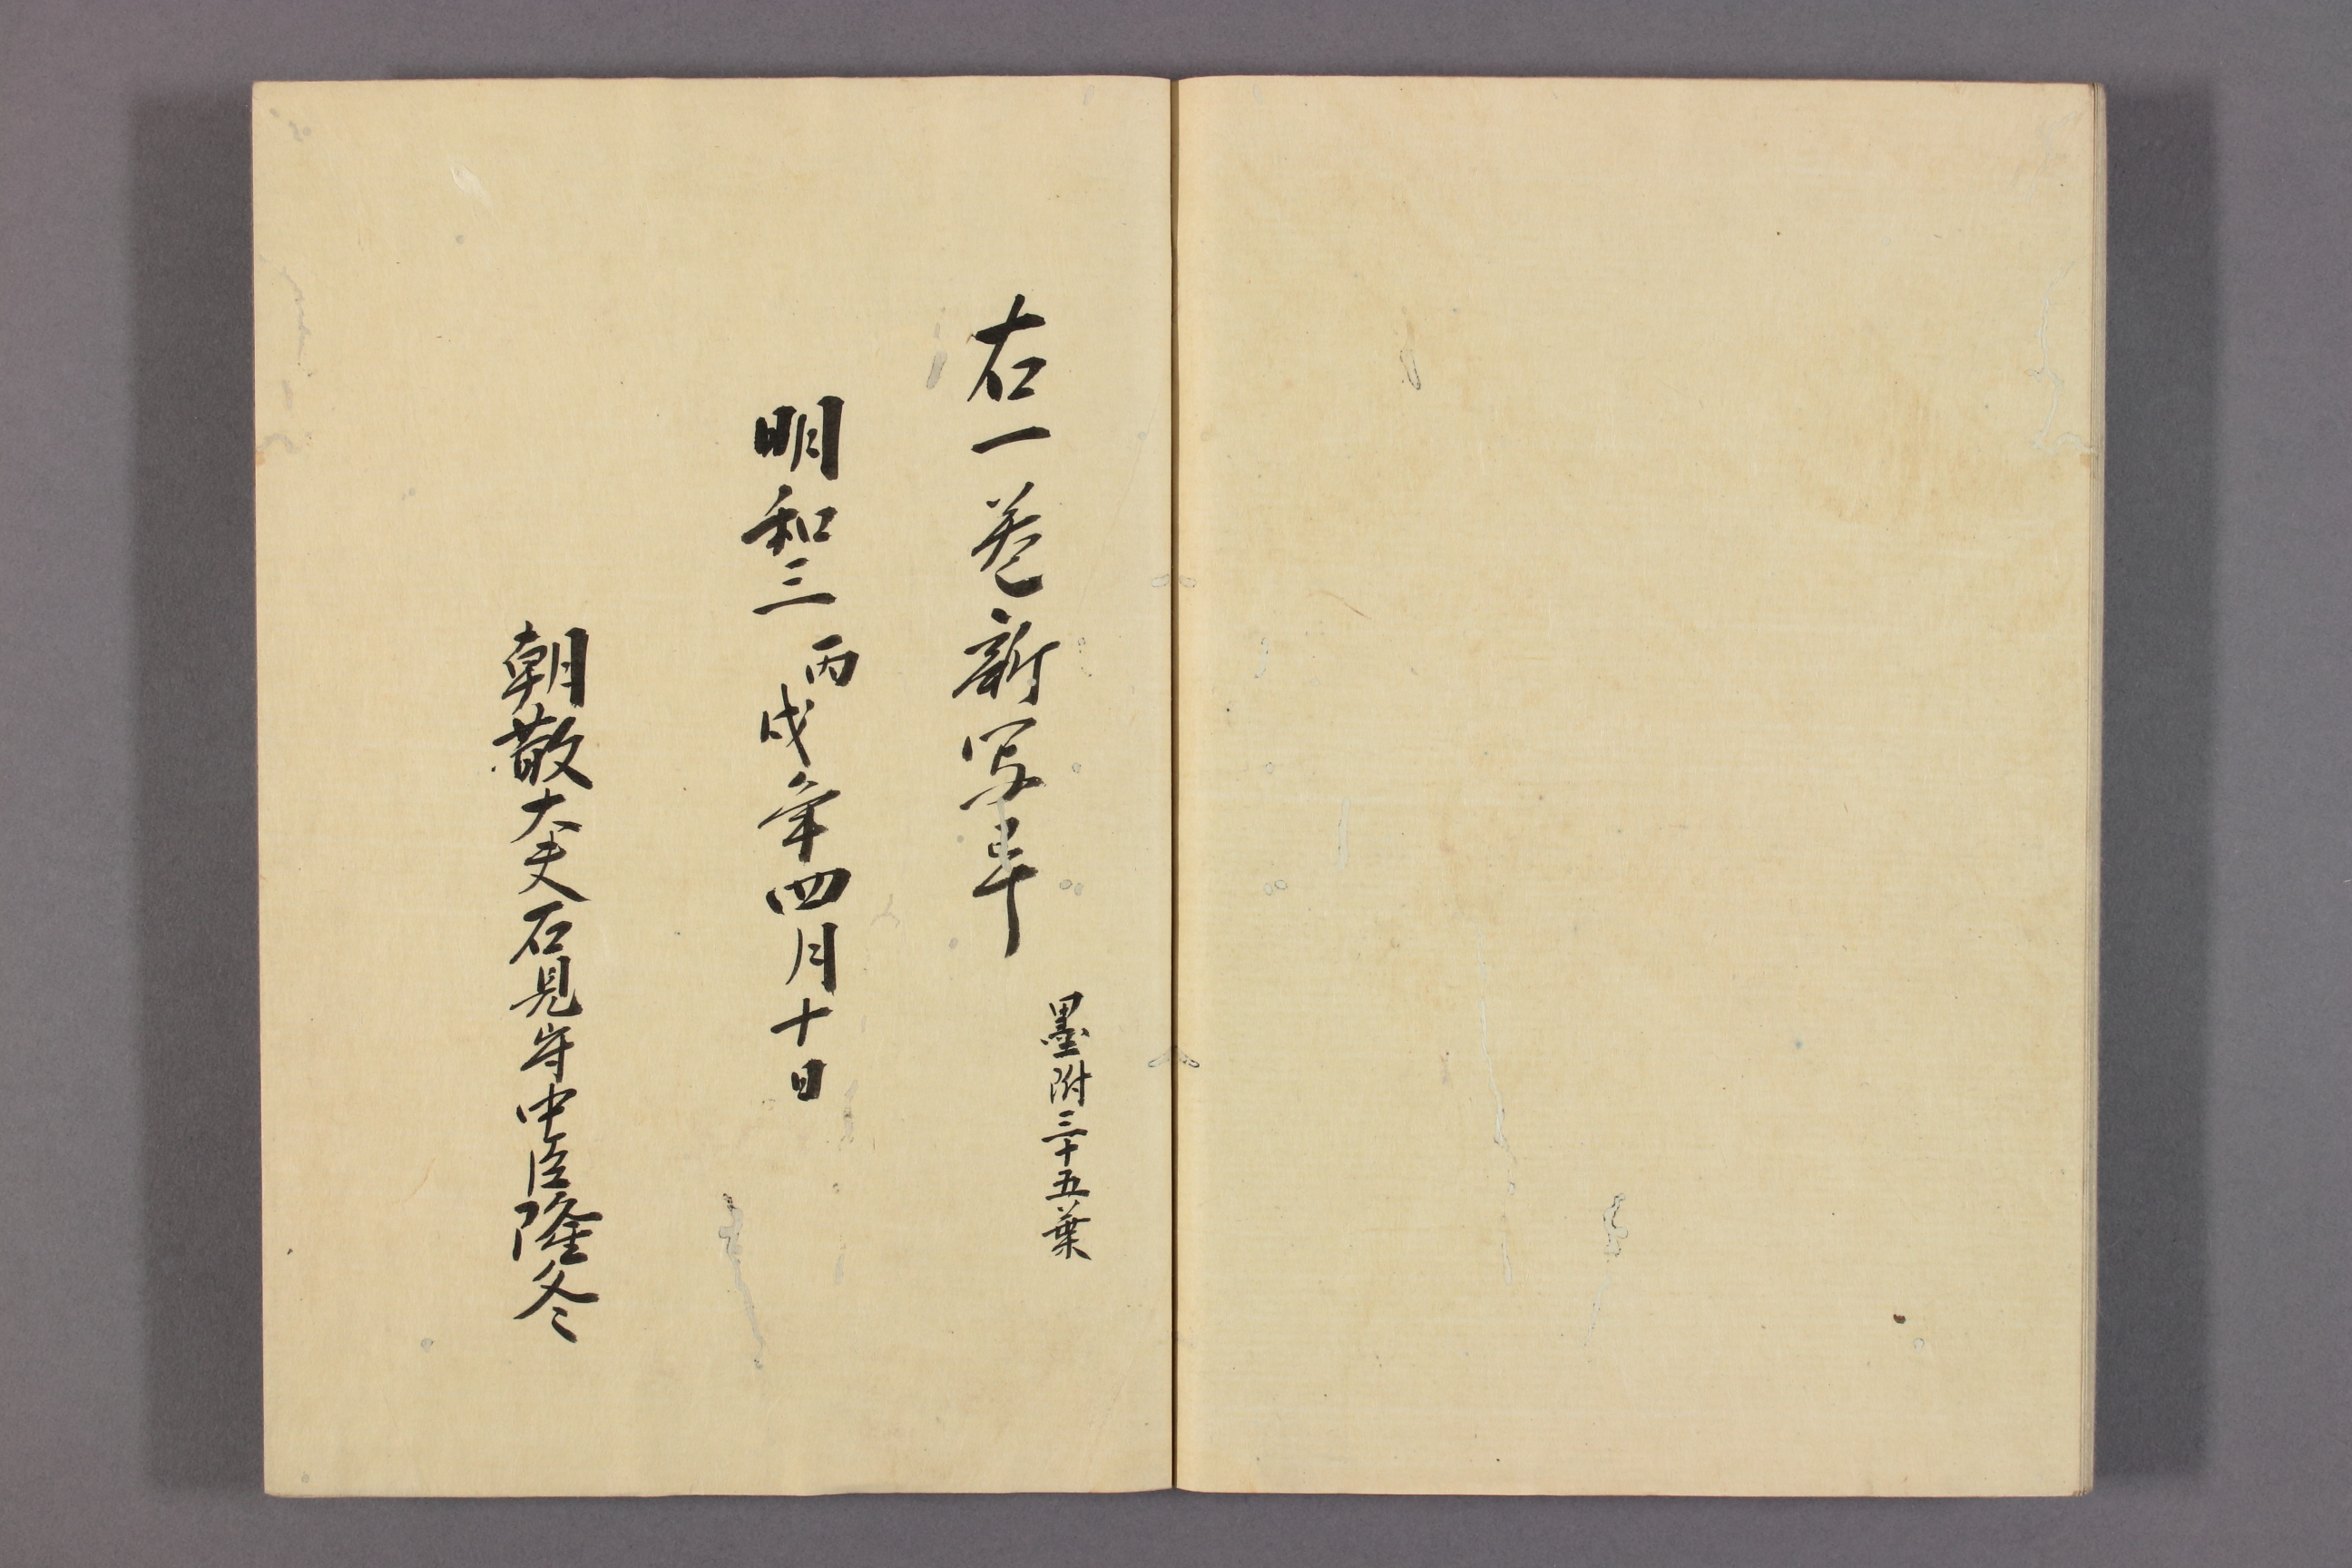 右一巻新写畢
墨附三十五葉
明和三丙戌年四月十日
朝散大夫石見守中臣隆冬